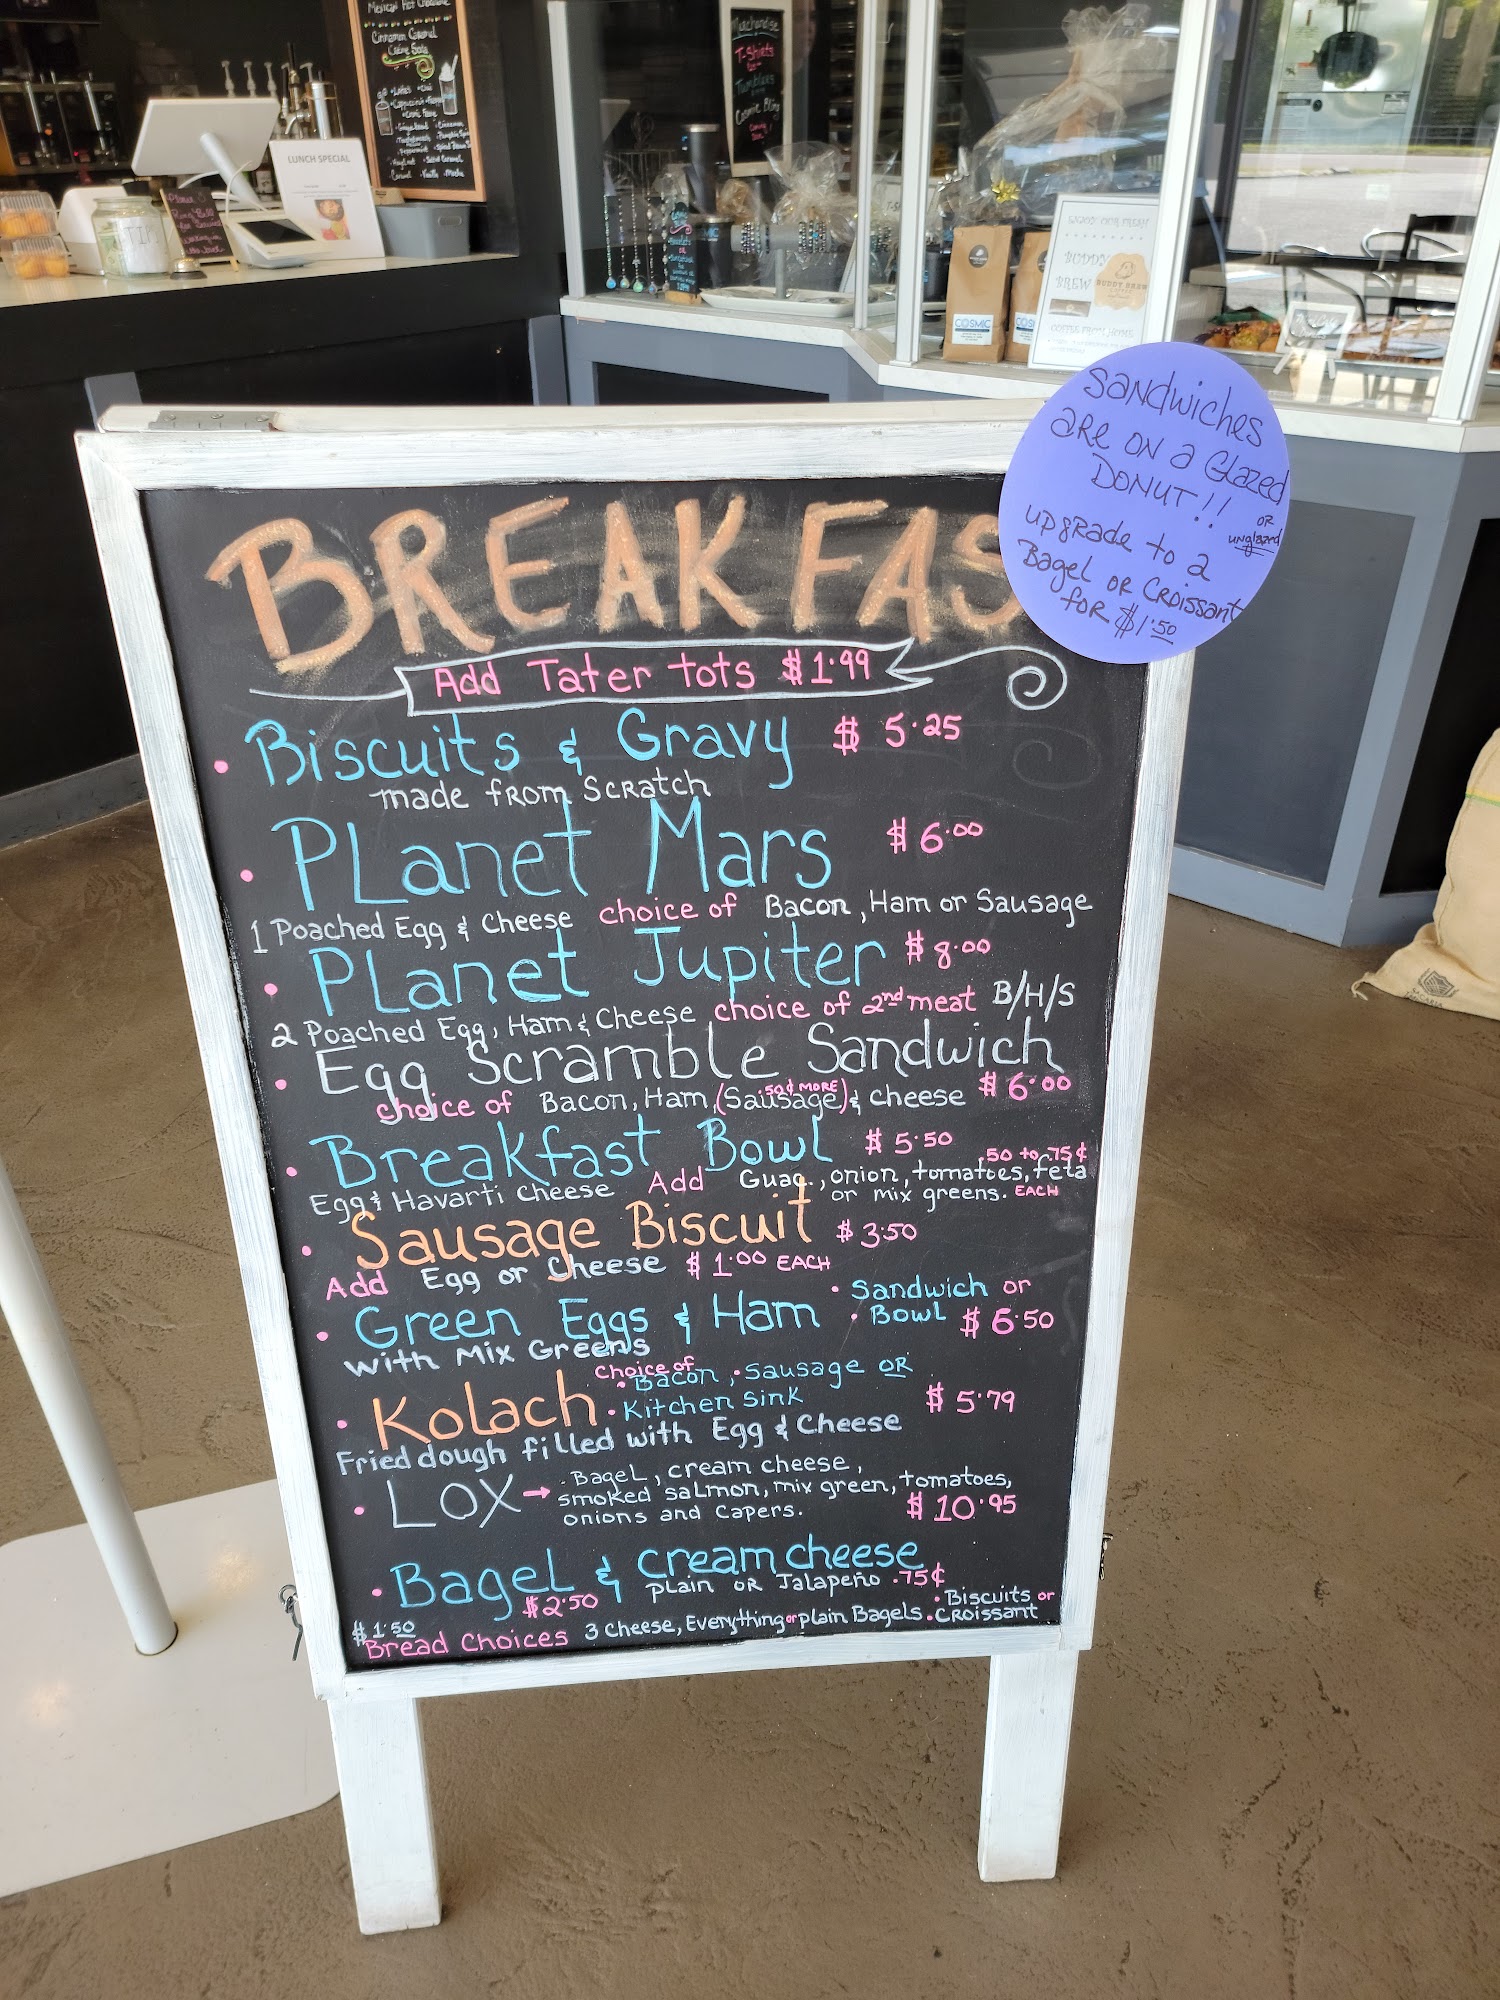 Mexical Hot Chocolate
Cinnamon Caramel
Creme Soda
LUNCH SPECIAL
Merchandise
T-Shirts
Tumblers
Cosmic Bling
ENJOY OUR FRESH
BUDDY
BREW
BUDDY BREW
COFFEE FROM HOME
COSMIC
SANDWICHES
ARE ON A Glazed
OR
unglazed
DONUT!!
UPGRADE to a
Bagel OR CROissant
FOR $1.50
BREAKFAS
Add Tater tots $1.99
• Biscuits & Gravy $5.25
made from Scratch
• PLanet Mars $6.00
1 Poached Egg & Cheese choice of Bacon, Ham or Sausage
• PLanet Jupiter $8.00
2 Poached Egg, Ham & Cheese choice of 2nd meat B/H/S
• Egg Scramble Sandwich
choice of Bacon, Ham, (Sausage 50¢ MORE) & cheese $6.00
• Breakfast Bowl $5.50
Egg & Havarti Cheese Add Guac., onion, tomatoes, feta .50 to .75¢
or mix greens. EACH
• Sausage Biscuit $3.50
Add Egg or Cheese $1.00 EACH
• Green Eggs & Ham • Sandwich or
• Bowl $6.50
with Mix Greens
• Kolach choice of • Bacon, • Sausage OR
• Kitchen Sink $5.79
Fried dough filled with Egg & Cheese
• LOX → Bagel, cream cheese,
smoked salmon, mix green, tomatoes,
onions and capers. $10.95
• Bagel & cream cheese
$2.50 plain or Jalapeño .75¢
$1.50
Bread Choices 3 Cheese, Everything or plain Bagels • Biscuits or
• Croissant